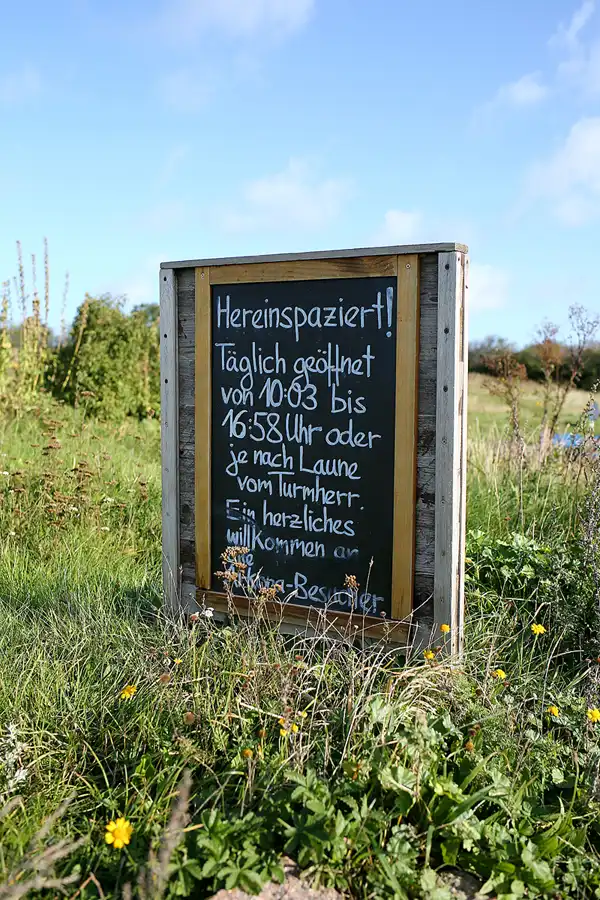 Hereinspaziert!
Täglich geöffnet
von 10:03 bis
16:58 Uhr oder
je nach Laune
vom Turmherr.
Ein herzliches
willkommen an
Besucher.